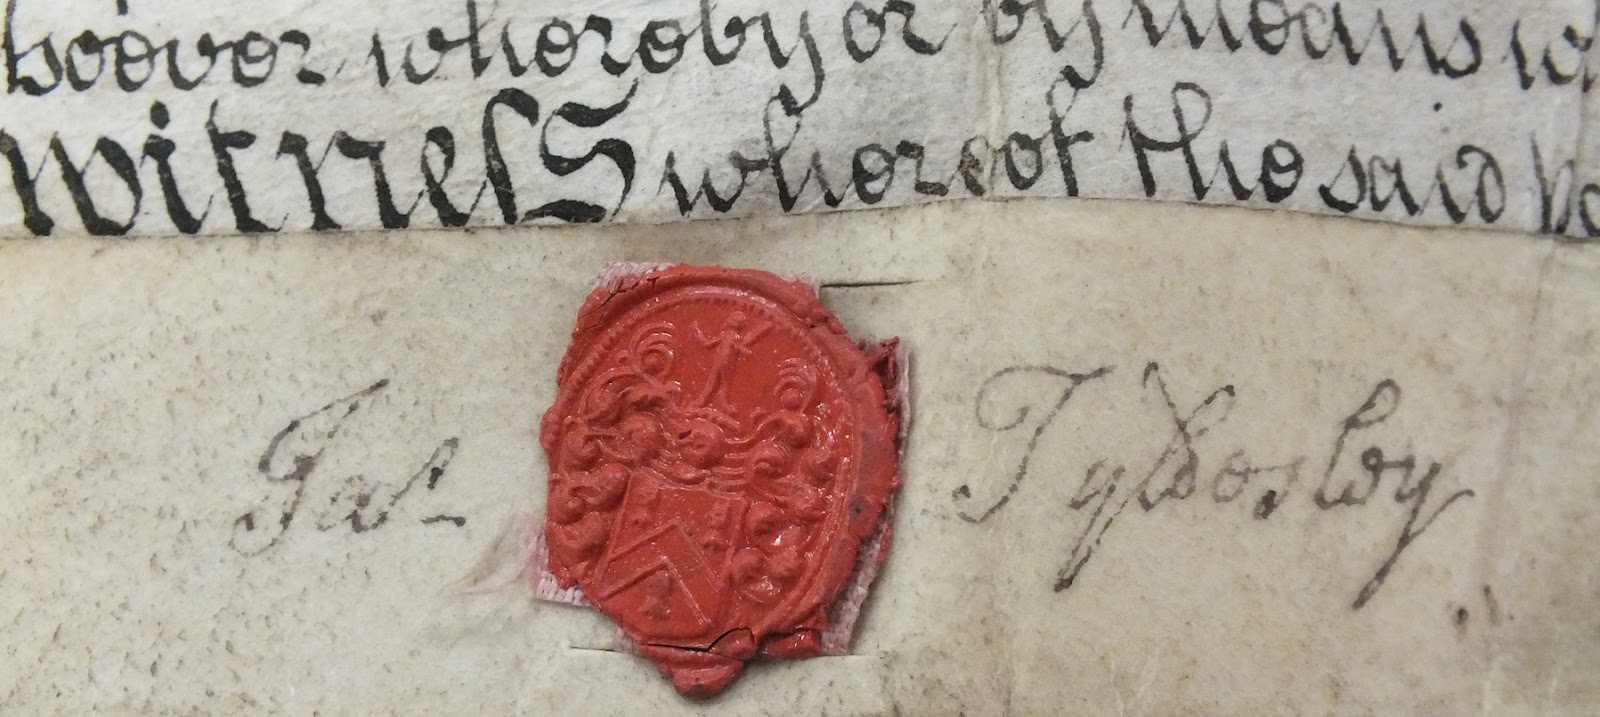 soever whereby or by means w
Witness whereof the said pa
Jas Tyldesley